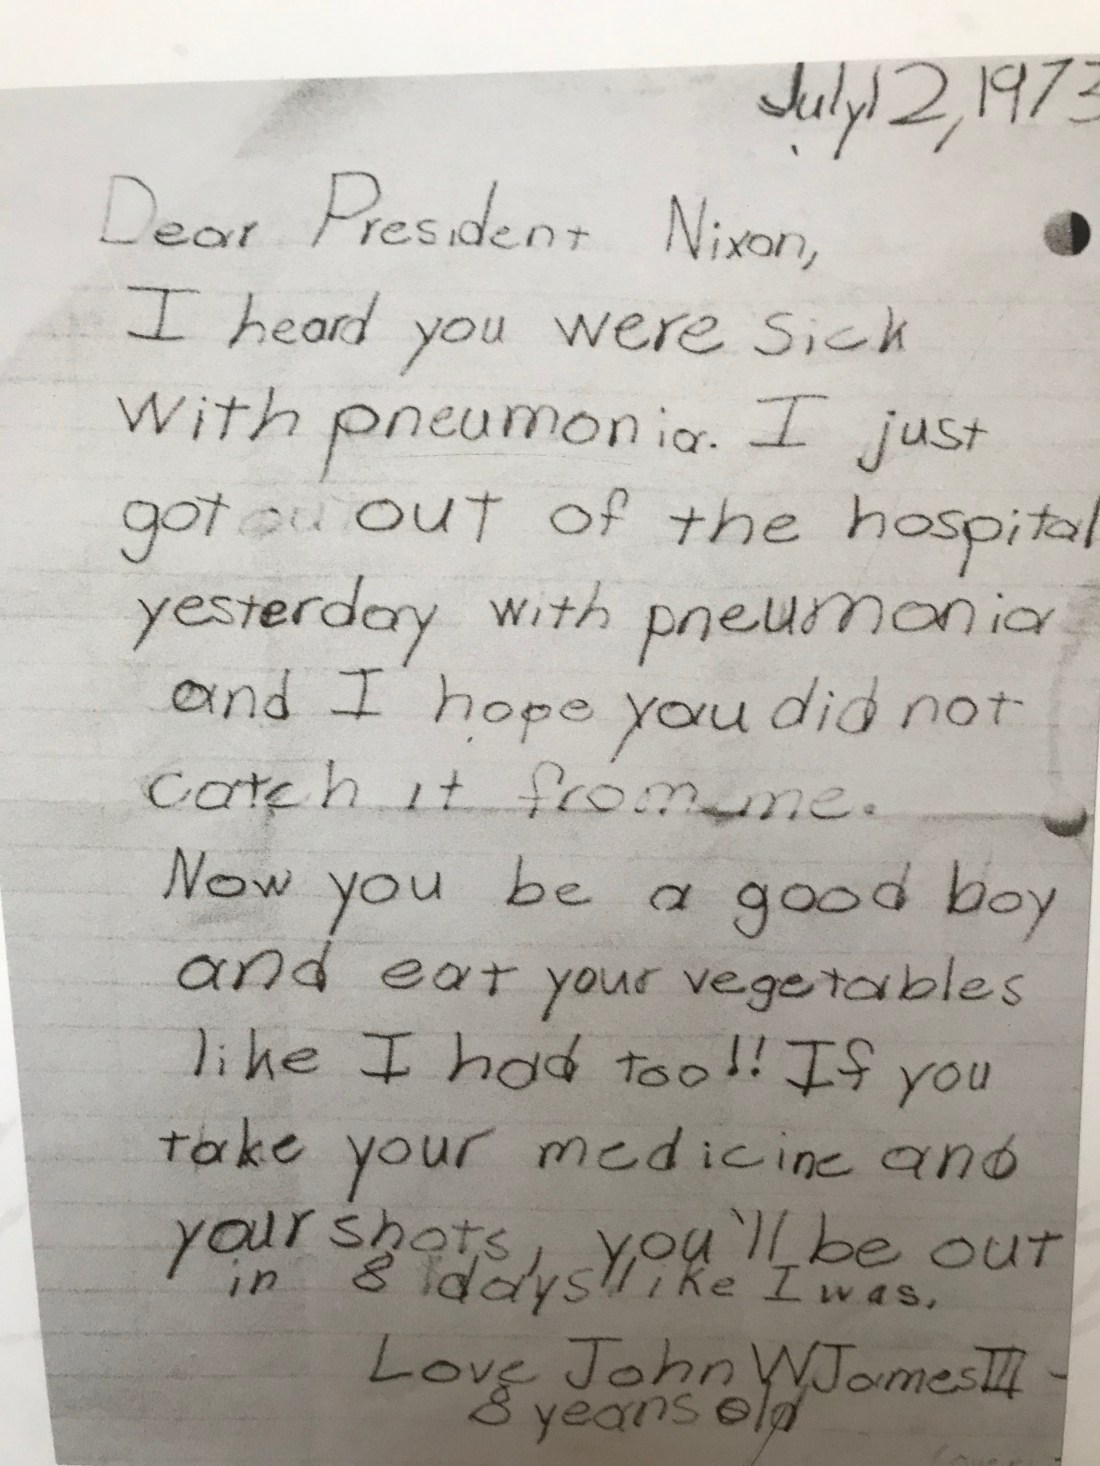 July 12, 1973
Dear President Nixon,
I heard you were sick
with pneumonia. I just
got ou out of the hospital
yesterday with pneumonia
and I hope you did not
catch it from me.
Now you be a good boy
and eat your vegetables
like I had too!! If you
take your medicine and
your shots, you'll be out
in 8 days like I was.
Love John W James III
8 years old